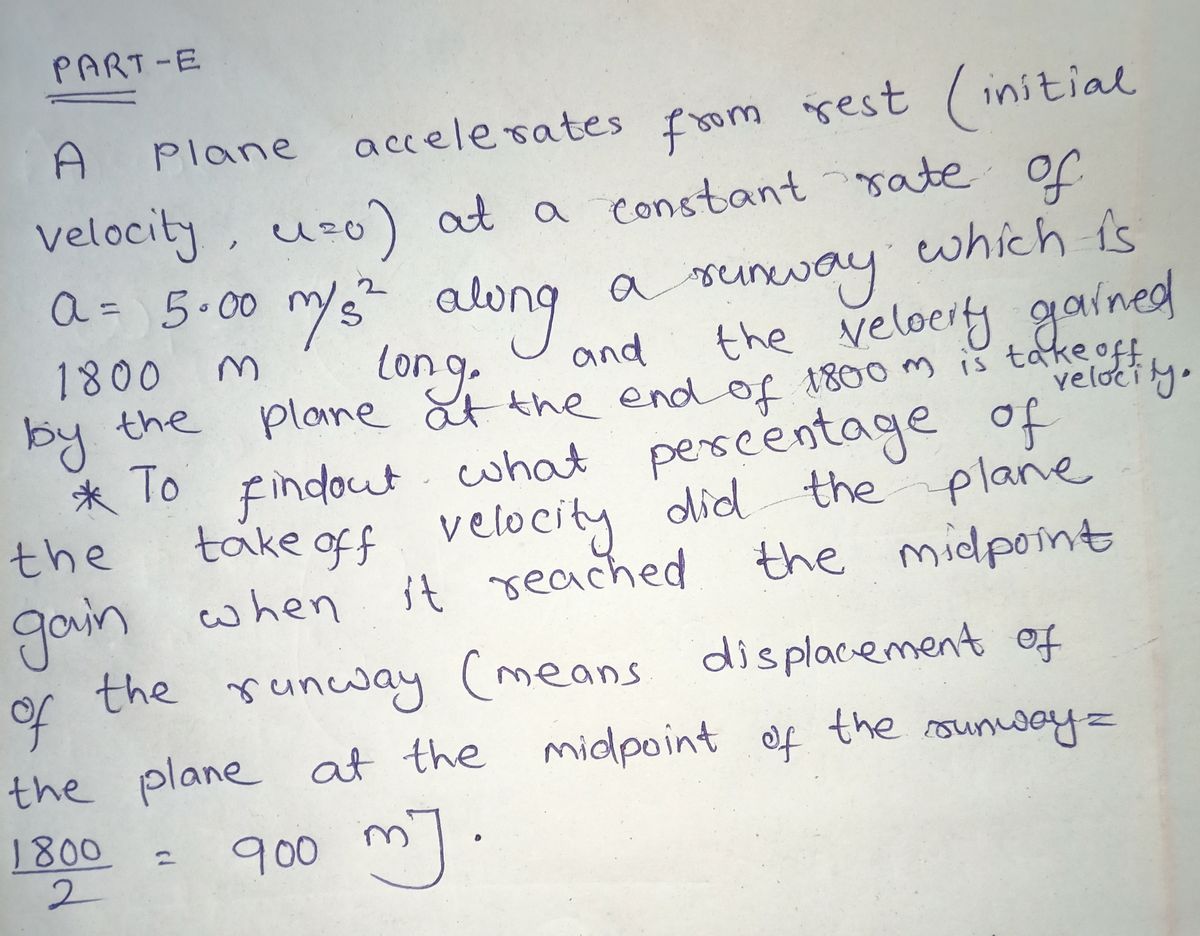 PART-E
A plane accelerates from rest (initial
velocity, u=0) at a constant rate of
a = 5.00 m/s² along a runway which is
1800 m long. and the velocity gained
by the plane at the end of 1800 m is takeoff
velocity.
* To findout what percentage of
the takeoff velocity did the plane
gain when it reached the midpoint
of the runway (means displacement of
the plane at the midpoint of the runway=
1800/2 = 900 m].